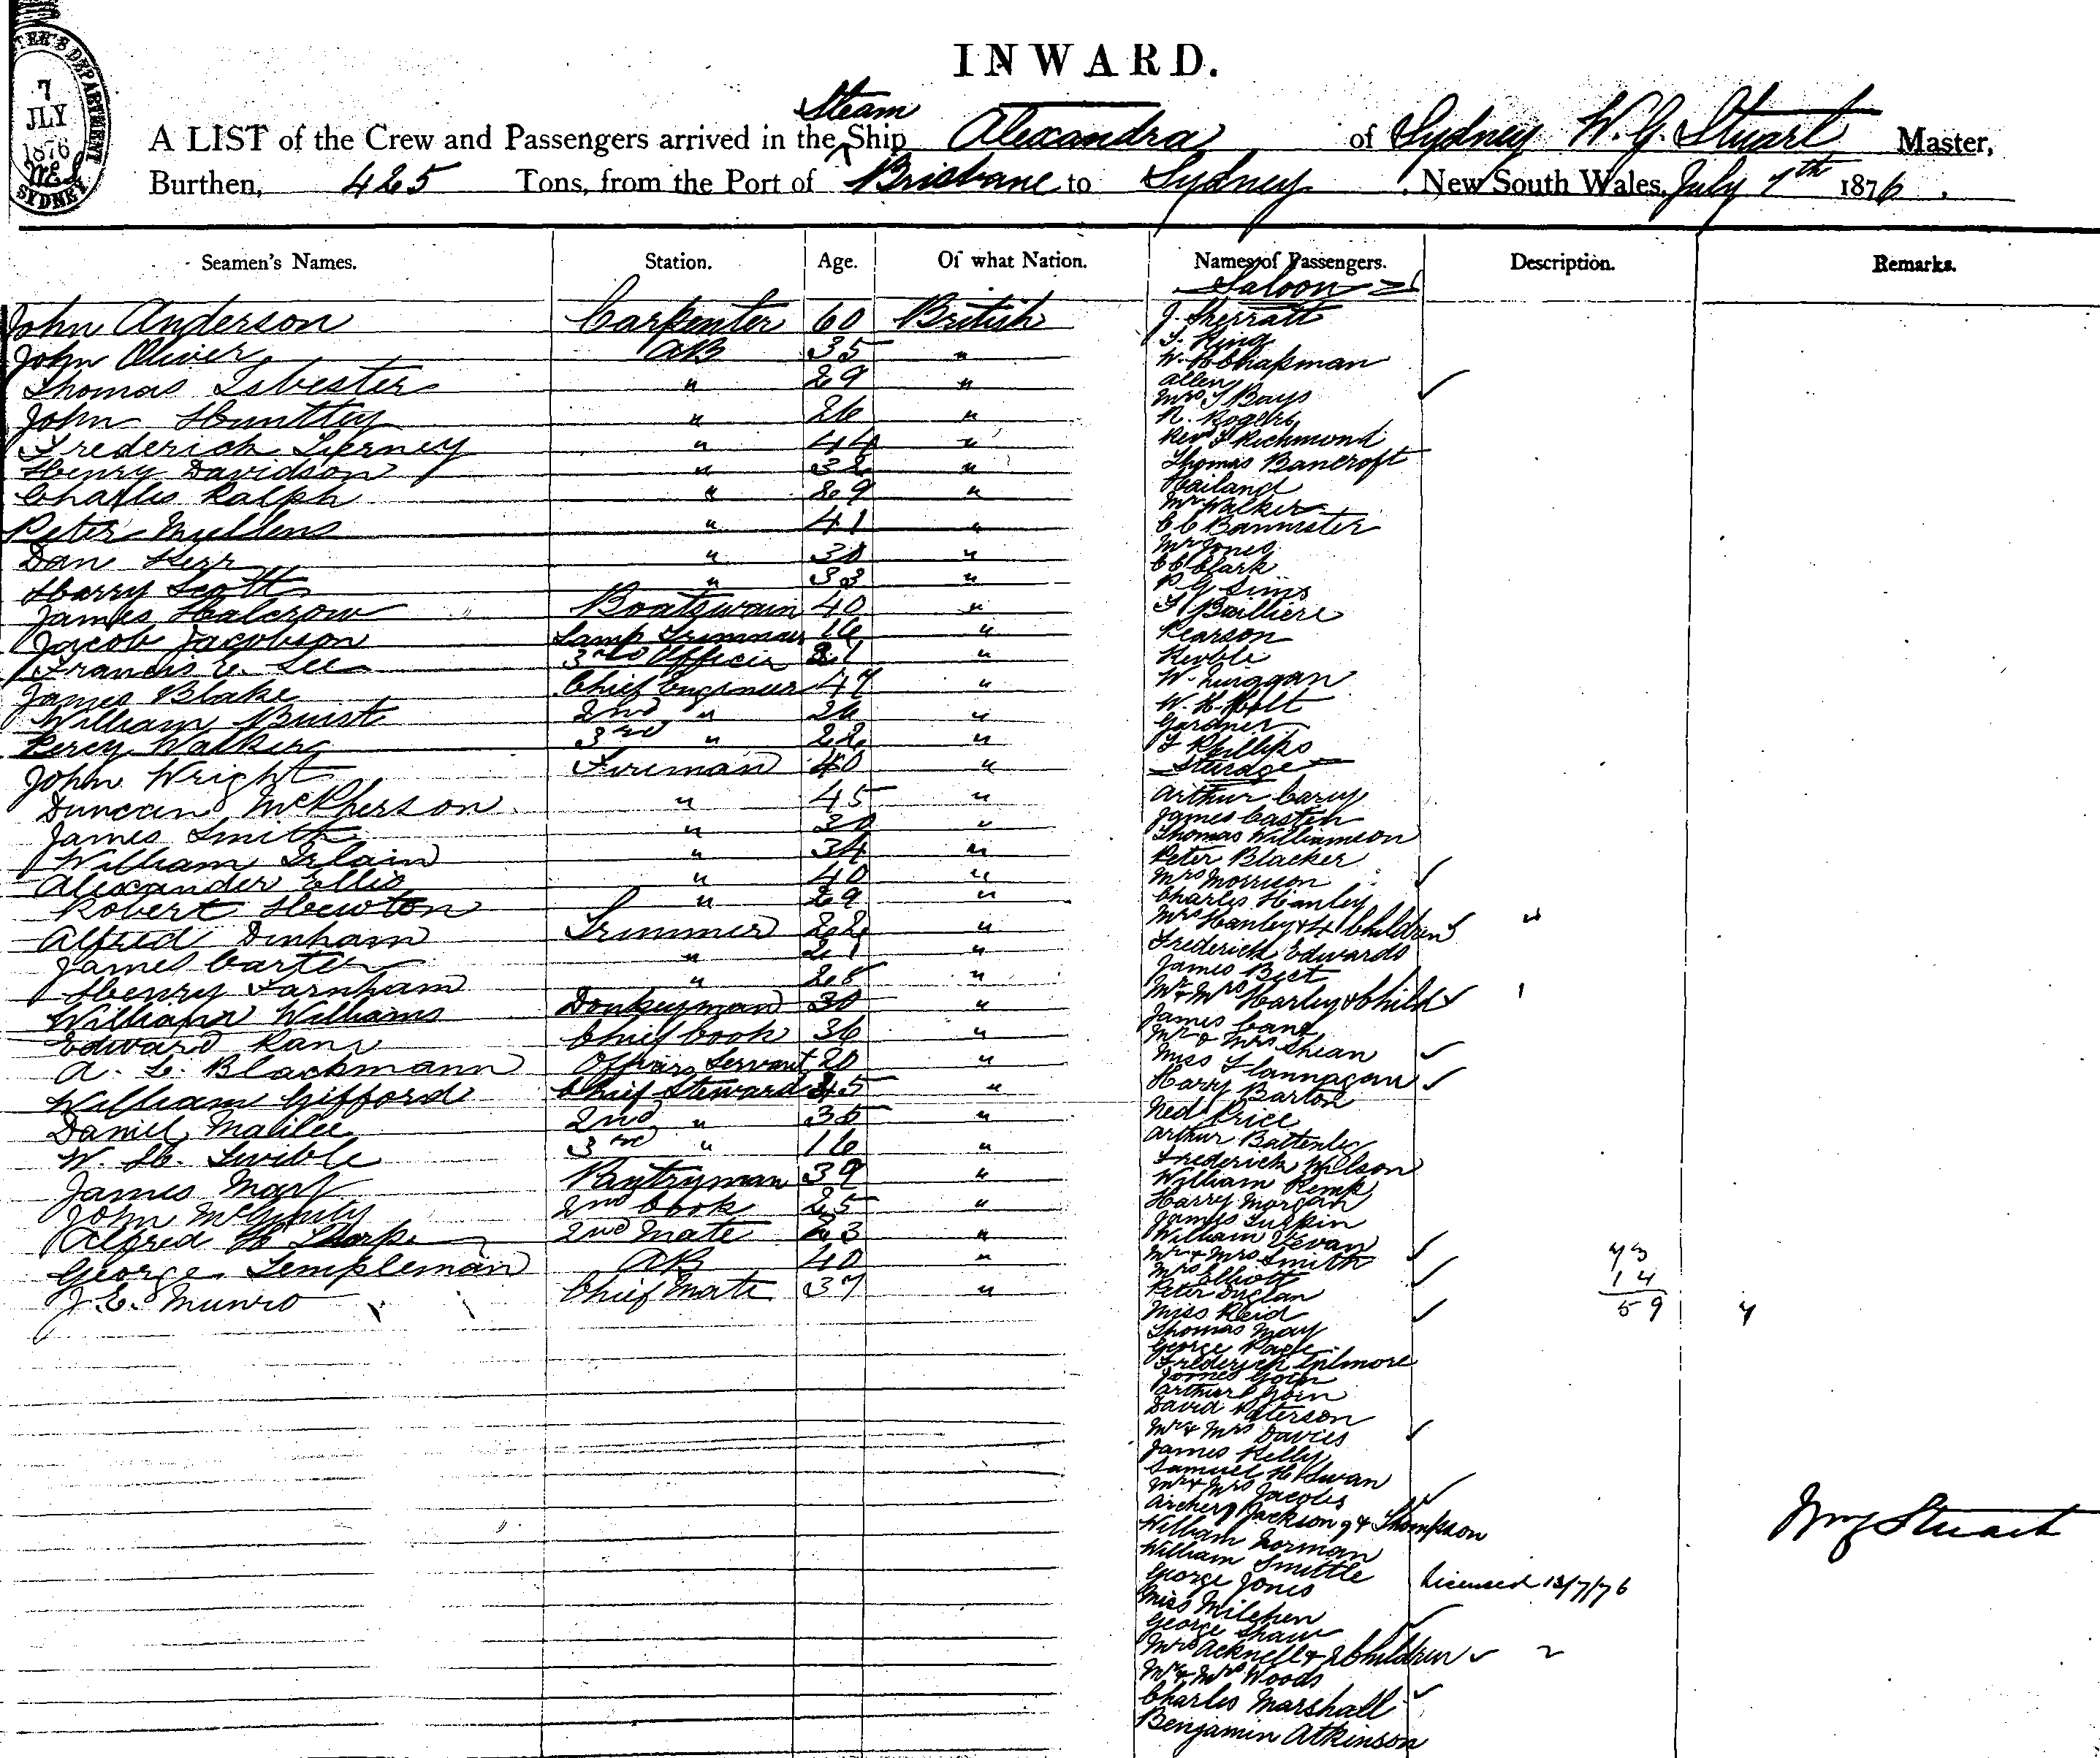 INWARD.
Steam
A LIST of the Crew and Passengers arrived in the Ship Alexandra of Sydney W.G. Stuart Master,
Burthen, 425 Tons, from the Port of Brisbane to Sydney, New South Wales, July 7th 1876.
7
JLY
1876
SYDNEY
Seamen's Names. Station. Age. Of what Nation. Names of Passengers. Description. Remarks.
Saloon
John Anderson Carpenter 60 British
John Oliver AB 35 "
Thomas Isbester " 29 "
John Huntley " 26 "
Frederick Tierney " 44 "
Henry Davidson " 32 "
Charles Ralph " 29 "
Peter Mullens " 41 "
Dan Kerr " 30 "
Harry Scott " 33 "
James Halcrow Boatswain 40 "
Jacob Jacobson Lamp Trimmer 16 "
Francis E. Lee 3rd Officer 21 "
James Blake Chief Engineer 47 "
William Buist 2nd " 26 "
Percy Walker 3rd " 22 "
John Wright Fireman 40 "
Duncan McPherson " 45 "
James Smith " 30 "
William " 34 "
Alexander Ellis " 40 "
Robert Hewton " 29 "
Alfred Dinham Trimmer 22 "
James Carter " 21 "
Henry Farnham " 28 "
William Williams Donkeyman 30 "
Edward Chief Cook 36 "
A. L. Blackmann Officers Servant 20 "
William Gifford Chief Steward 45 "
Daniel 2nd " 35 "
W. H. 3rd " 16 "
James May Pantryman 39 "
John McGinly 2nd Cook 25 "
Alfred H Thorpe 2nd Mate 23 "
George Templeman AB 40 "
J. E. Munro Chief Mate 37 "
J. Sherratt
T. King
W. H Chapman
Allen
Mrs T Bays
N. Rogers
Revd T Richmond
Thomas Bancroft
Hailand
Mr Walker
C C Bannister
Mr Jones
C C Clark
P G Sims
F Bailliere
Pearson
Keable
W.
W. H. Holt
Gardner
T Phillips
Steerage
Arthur Cary
James Castin
Thomas Williamson
Peter Blacker
Mrs Morrison
Charles Hanley
Mrs Hanley & 4 Children 4
Frederick Edwards
James Best
Mr & Mrs Harley & Child 1
James Cane
Mr & Mrs Shean
Miss Flannagan
Harry Barton
Ned Price
Arthur Battenby
Frederick Wilson
William Kemp
Harry Morgan
James Turpin
William Vevan
Mr & Mrs Smith
Mrs Elliott
Peter
Miss Reid
Thomas May
George Page
Frederick Gilmore
James Goin
Arthur Goin
David Paterson
Mr & Mrs Davies
James Kelly
Samuel H Swan
Mr & Mrs Jacobs
Archery Jackson & Thompson
William Norman
William Smittle
George Jones
Miss Milchen
George Shaw
Mrs Acknell & 2 Children 2
Mr & Mrs Woods
Charles Marshall
Benjamin Atkinson
73
14
59 7
Wm G Stuart
Licensed 13/7/76